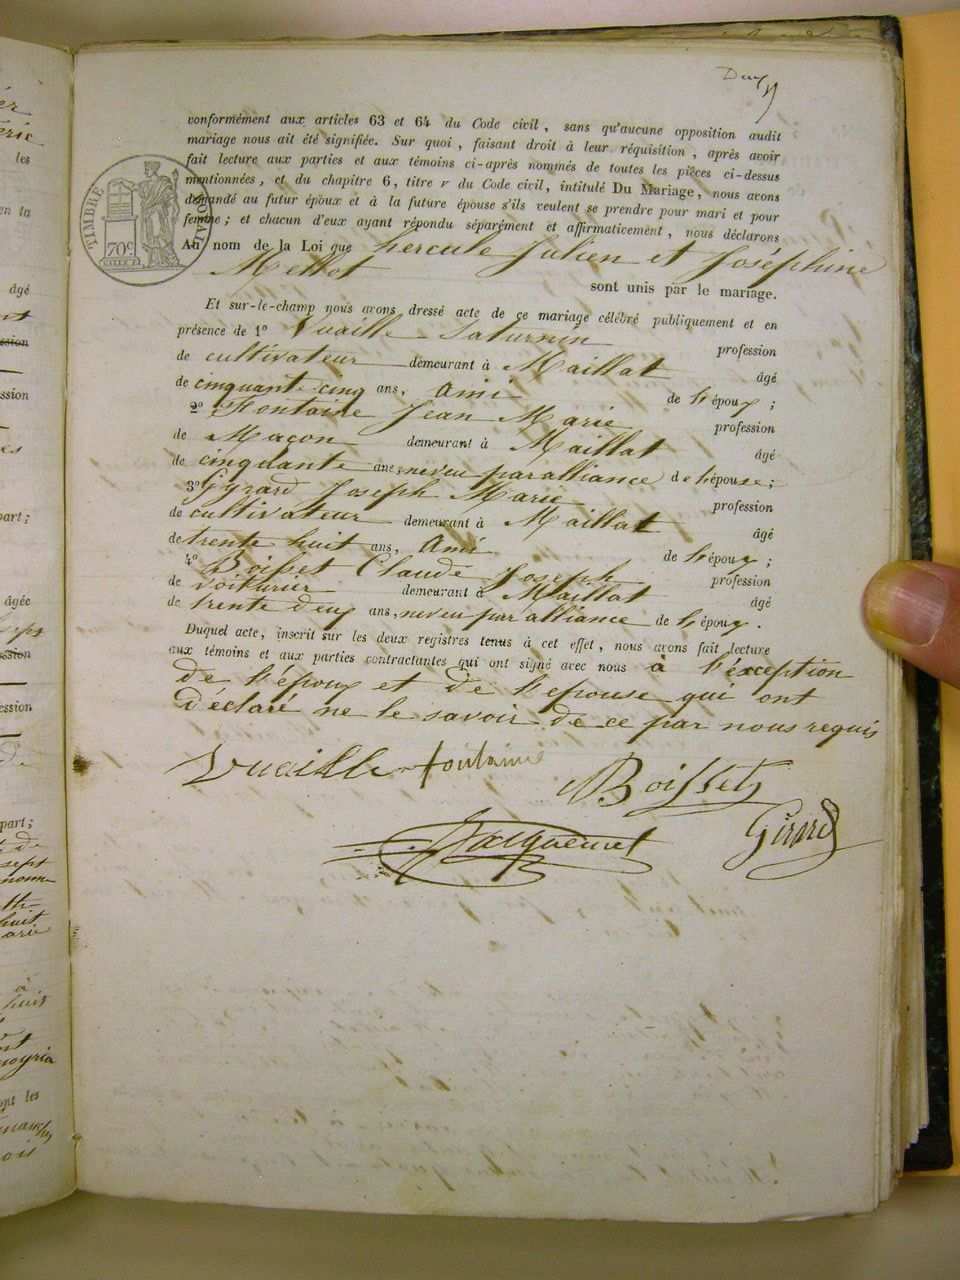 Deux
conformément aux articles 63 et 64 du Code civil, sans qu'aucune opposition audit
mariage nous ait été signifiée. Sur quoi, faisant droit à leur réquisition, après avoir
fait lecture aux parties et aux témoins ci-après nommés de toutes les pièces ci-dessus
mentionnées, et du chapitre 6, titre v du Code civil, intitulé Du Mariage, nous avons
demandé au futur époux et à la future épouse s'ils veulent se prendre pour mari et pour
femme; et chacun d'eux ayant répondu séparément et affirmativement, nous déclarons
TIMBRE ROYAL
70 c
Au nom de la Loi que hercule Julien et Joséphine
Mellot
sont unis par le mariage.
Et sur-le-champ nous avons dressé acte de ce mariage célébré publiquement et en
présence de 1º Vuaille Saturnin profession
de cultivateur demeurant à Maillat âgé
de cinquante-cinq ans, Ami de l'époux;
2º Fontaine Jean Marie profession
de Maçon demeurant à Maillat âgé
de cinquante ans, neveu par alliance de l'épouse;
3º Girard Joseph Marie profession
de cultivateur demeurant à Maillat âgé
de trente huit ans, Ami de l'époux;
4º Boisset Claude Joseph profession
de voiturier demeurant à Maillat âgé
de trente deux ans, neveu par alliance de l'époux.
Duquel acte, inscrit sur les deux registres tenus à cet effet, nous avons fait lecture
aux témoins et aux parties contractantes qui ont signé avec nous à l'exception
de l'époux et de l'epouse qui ont
déclaré ne le savoir de ce par nous requis
Vuaille fontaine Boisset
Jacquemet Girard
les
âgé
ssion
ssion
part;
âgée
ssion
ession
part;
sept
huit
à
huit
ont les